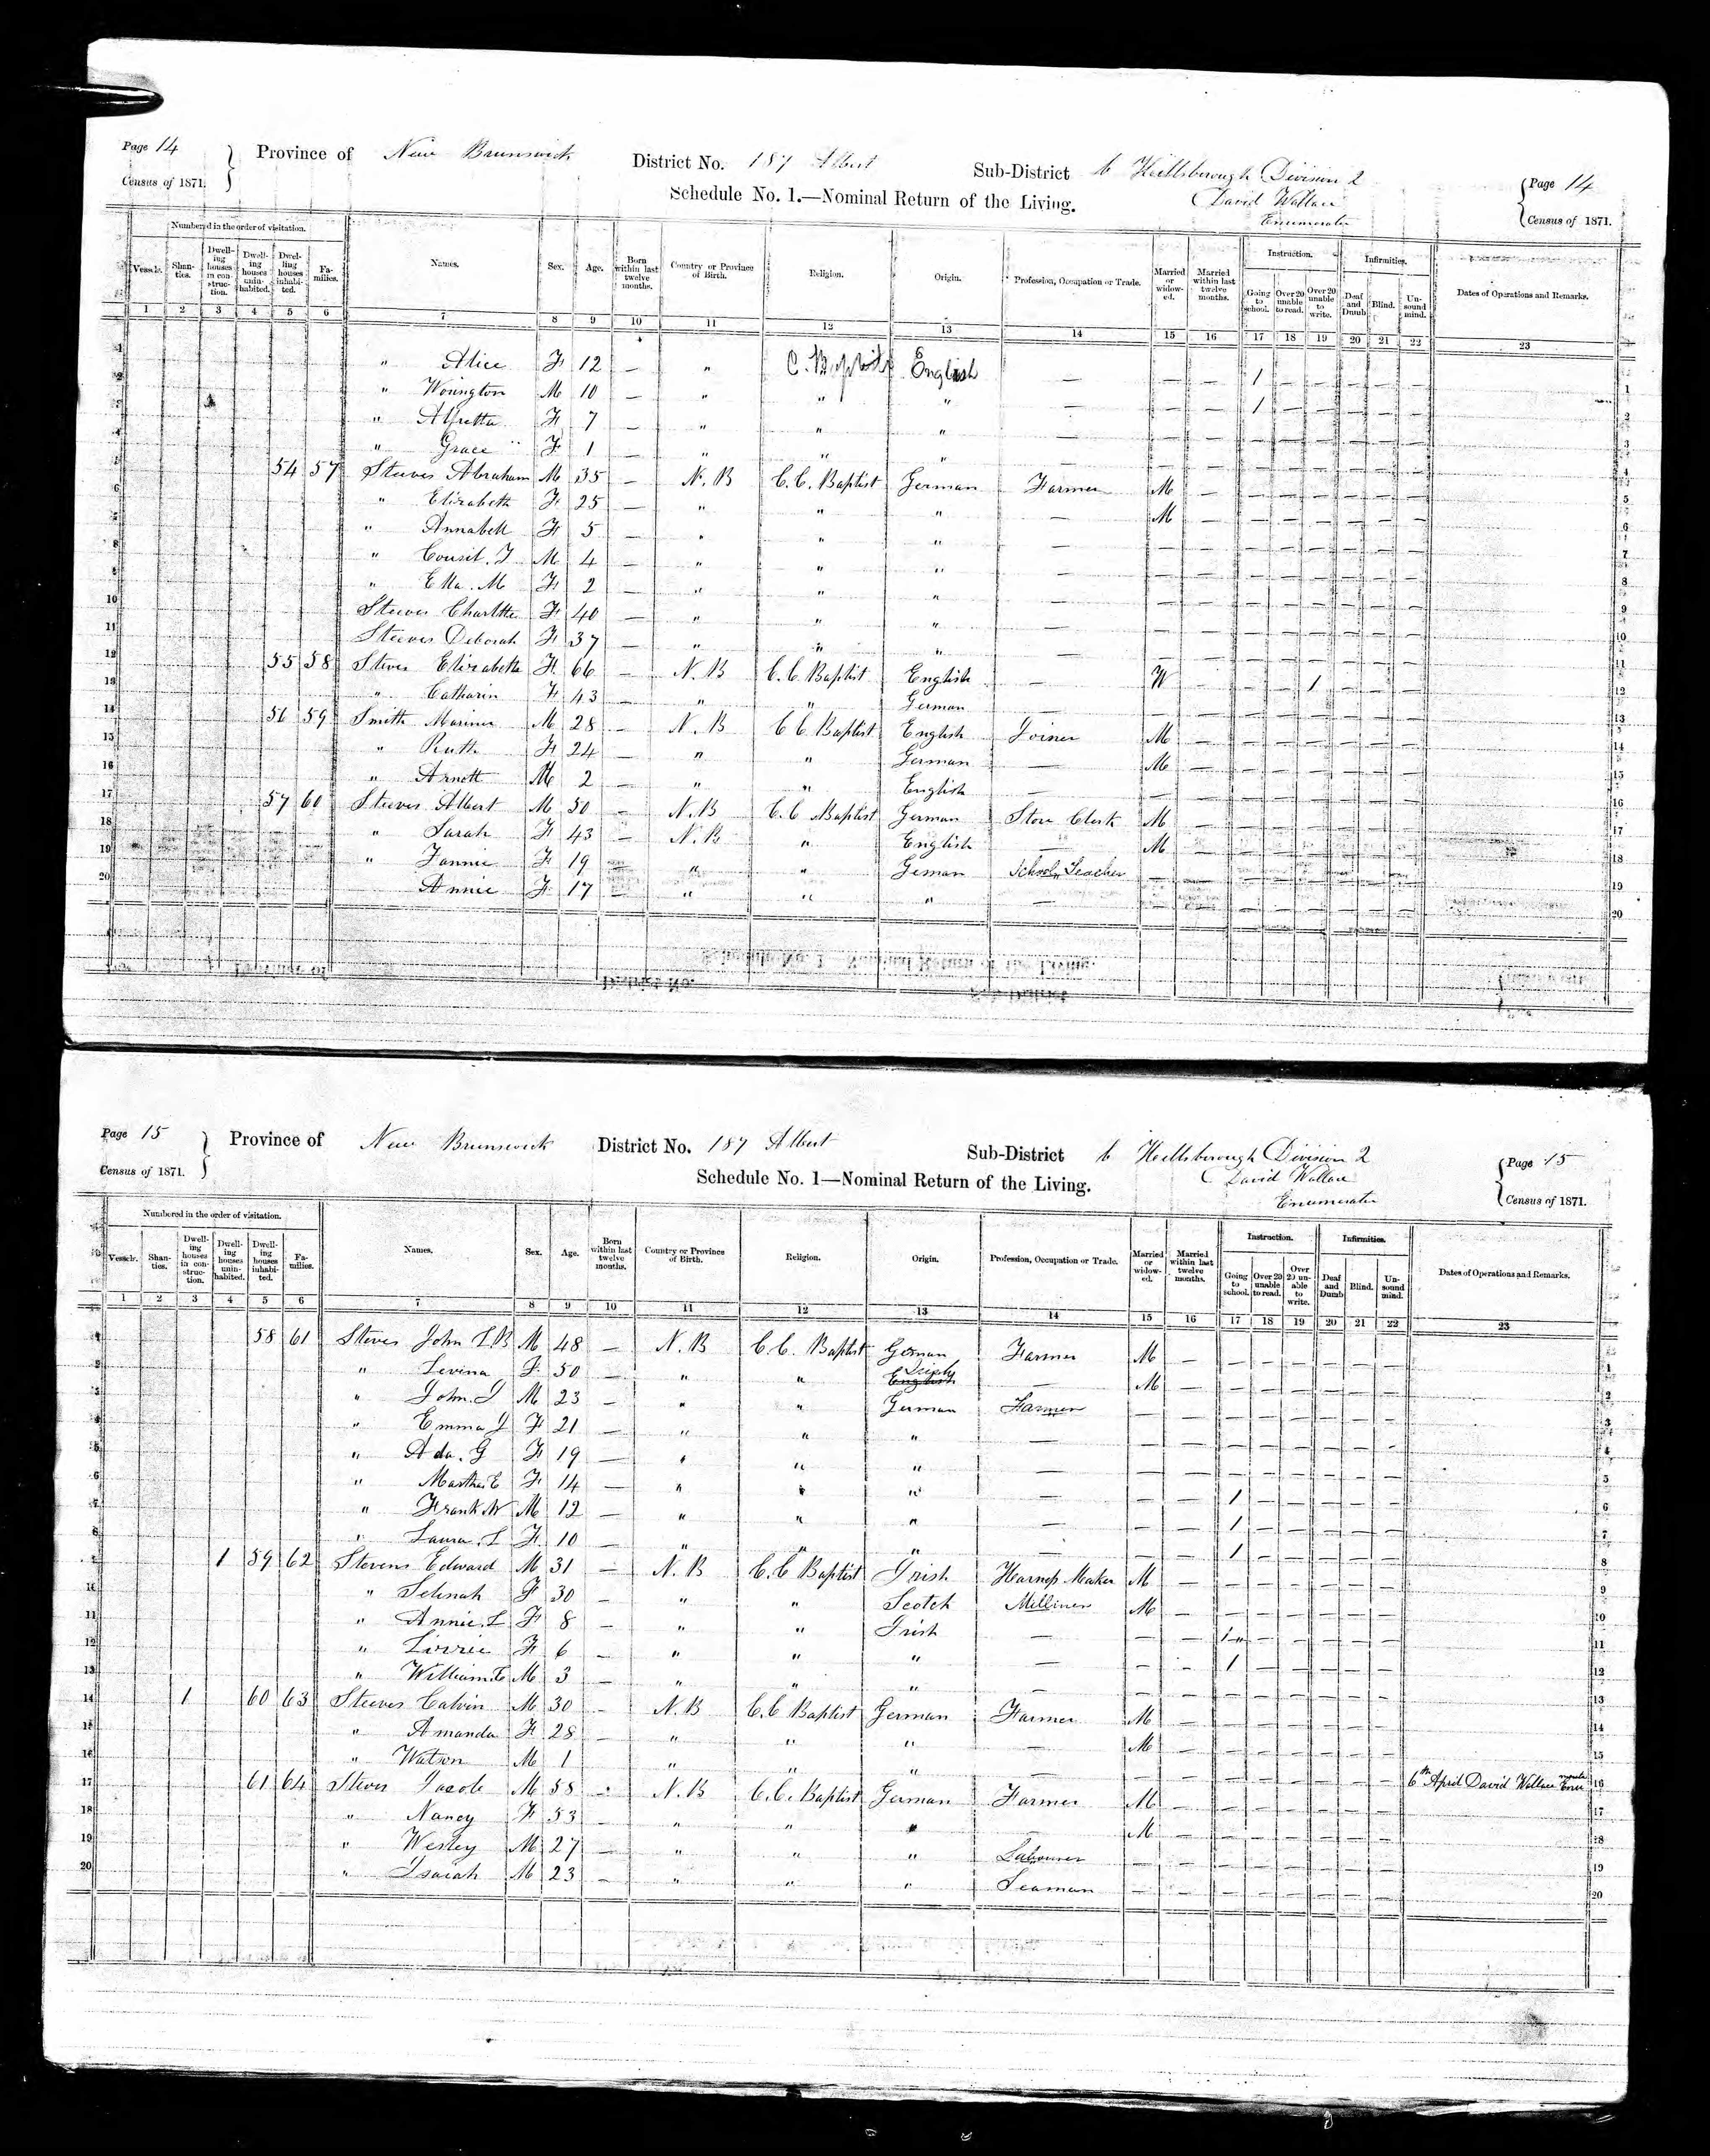 Page 14
Census of 1871.
Province of New Brunswick
District No. 187 Albert
Sub-District b Hillsborough Division 2
David Wallace
Enumerator
Page 14
Census of 1871.
Schedule No. 1.—Nominal Return of the Living.
Numbered in the order of visitation. Instruction. Infirmities.
Vessels. Shanties. Dwelling houses in construction. Dwelling houses uninhabited. Dwelling houses inhabited. Families. Names. Sex. Age. Born within last twelve months. Country or Province of Birth. Religion. Origin. Profession, Occupation or Trade. Married or widowed. Married within last twelve months. Going to school. Over 20 unable to read. Over 20 unable to write. Deaf and Dumb. Blind. Unsound mind. Dates of Operations and Remarks.
1 2 3 4 5 6 7 8 9 10 11 12 13 14 15 16 17 18 19 20 21 22 23
1 " Alice F 12 — " C. Baptist English — — — 1 — — — — — 1
2 " Worington M 10 — " " " — — — 1 — — — — — 2
3 " Alfretta F 7 — " " " — — — — — — — — — 3
4 " Grace F 1 — " " " — — — — — — — — — 4
5 54 57 Steeves Abraham M 35 — N. B C. C. Baptist German Farmer M — — — — — — — 5
6 " Elizabeth F 25 — " " " — M — — — — — — — 6
7 " Annabell F 5 — " " " — — — — — — — — — 7
8 " M 4 — " " " — — — — — — — — — 8
9 " Ella. M F 2 — " " " — — — — — — — — — 9
10 Steeves Charlotte F 40 — " " " — — — — — — — — — 10
11 Steeves Deborah F 37 — " " " — — — — — — — — — 11
12 55 58 Steves Elizabeth F 66 — N. B C. C. Baptist English — W — — 1 — — — 12
13 " Catharin F 43 — " " German — — — — — — — — 13
14 56 59 Smith Mariner M 28 — N. B C C Baptist English Joiner M — — — — — — — 14
15 " Ruth F 24 — " " German — M — — — — — — — 15
16 " Arnott M 2 — " " English — — — — — — — — — 16
17 57 60 Steeves Albert M 50 — N. B C. C Baptist German Store Clerk M — — — — — — — 17
18 " Sarah F 43 — N. B " English — M — — — — — — — 18
19 " Fannie F 19 — " " Geman School Teacher — — — — — — — — 19
20 Annie F 17 — " " " — — — — — — — — — 20
Page 15
Census of 1871.
Province of New Brunswick
District No. 187 Albert
Sub-District b Hillsborough Division 2
David Wallace
Enumerator
Page 15
Census of 1871.
Schedule No. 1—Nominal Return of the Living.
Numbered in the order of visitation. Instruction. Infirmities.
Vessels. Shanties. Dwelling houses in construction. Dwelling houses uninhabited. Dwelling houses inhabited. Families. Names. Sex. Age. Born within last twelve months. Country or Province of Birth. Religion. Origin. Profession, Occupation or Trade. Married or widowed. Married within last twelve months. Going to school. Over 20 unable to read. Over 20 unable to write. Deaf and Dumb Blind. Unsound mind. Dates of Operations and Remarks.
1 2 3 4 5 6 7 8 9 10 11 12 13 14 15 16 17 18 19 20 21 22 23
1 58 61 Steves John L B M 48 — N. B C. C. Baptist German Farmer M — — — — — — — 1
2 " Levina F 50 — " " English Irish — M — — — — — — — 2
3 " John. J M 23 — " " German Farmer — — — — — — — — 3
4 " Emma J F 21 — " " " — — — — — — — — — 4
5 " Ada. G F 19 — " " " — — — — — — — — — 5
6 " Martha E F 14 — " " " — — — 1 — — — — — 6
7 " Frank W M 12 — " " " — — — 1 — — — — — 7
8 " Laura. L F 10 — " " " — — — 1 — — — — — 8
9 1 59 62 Stevens Edward M 31 — N. B C. C Baptist Irish Harness Maker M — — — — — — — 9
10 " Selinah F 30 — " " Scotch Milliner M — — — — — — — 10
11 " Annie. L F 8 — " " Irish — — — 1 — — — — — 11
12 " Lizzie F 6 — " " " — — — 1 — — — — — 12
13 " William. M 3 — " " " — — — — — — — — — 13
14 1 60 63 Steeves Calvin M 30 — N. B C. C Baptist German Farmer M — — — — — — — 14
15 " Amanda F 28 — " " " — M — — — — — — — 15
16 " Watson M 1 — " " " — — — — — — — — — 6th April David Wallace Enumerator 16
17 61 64 Steves Jacob M 58 — N. B C. C. Baptist German Farmer M — — — — — — — 17
18 " Nancy F 53 — " " " — M — — — — — — — 18
19 " Wesley M 27 — " " " Labourer — — — — — — — — 19
20 " Isaiah M 23 — " " " Seaman — — — — — — — — 20